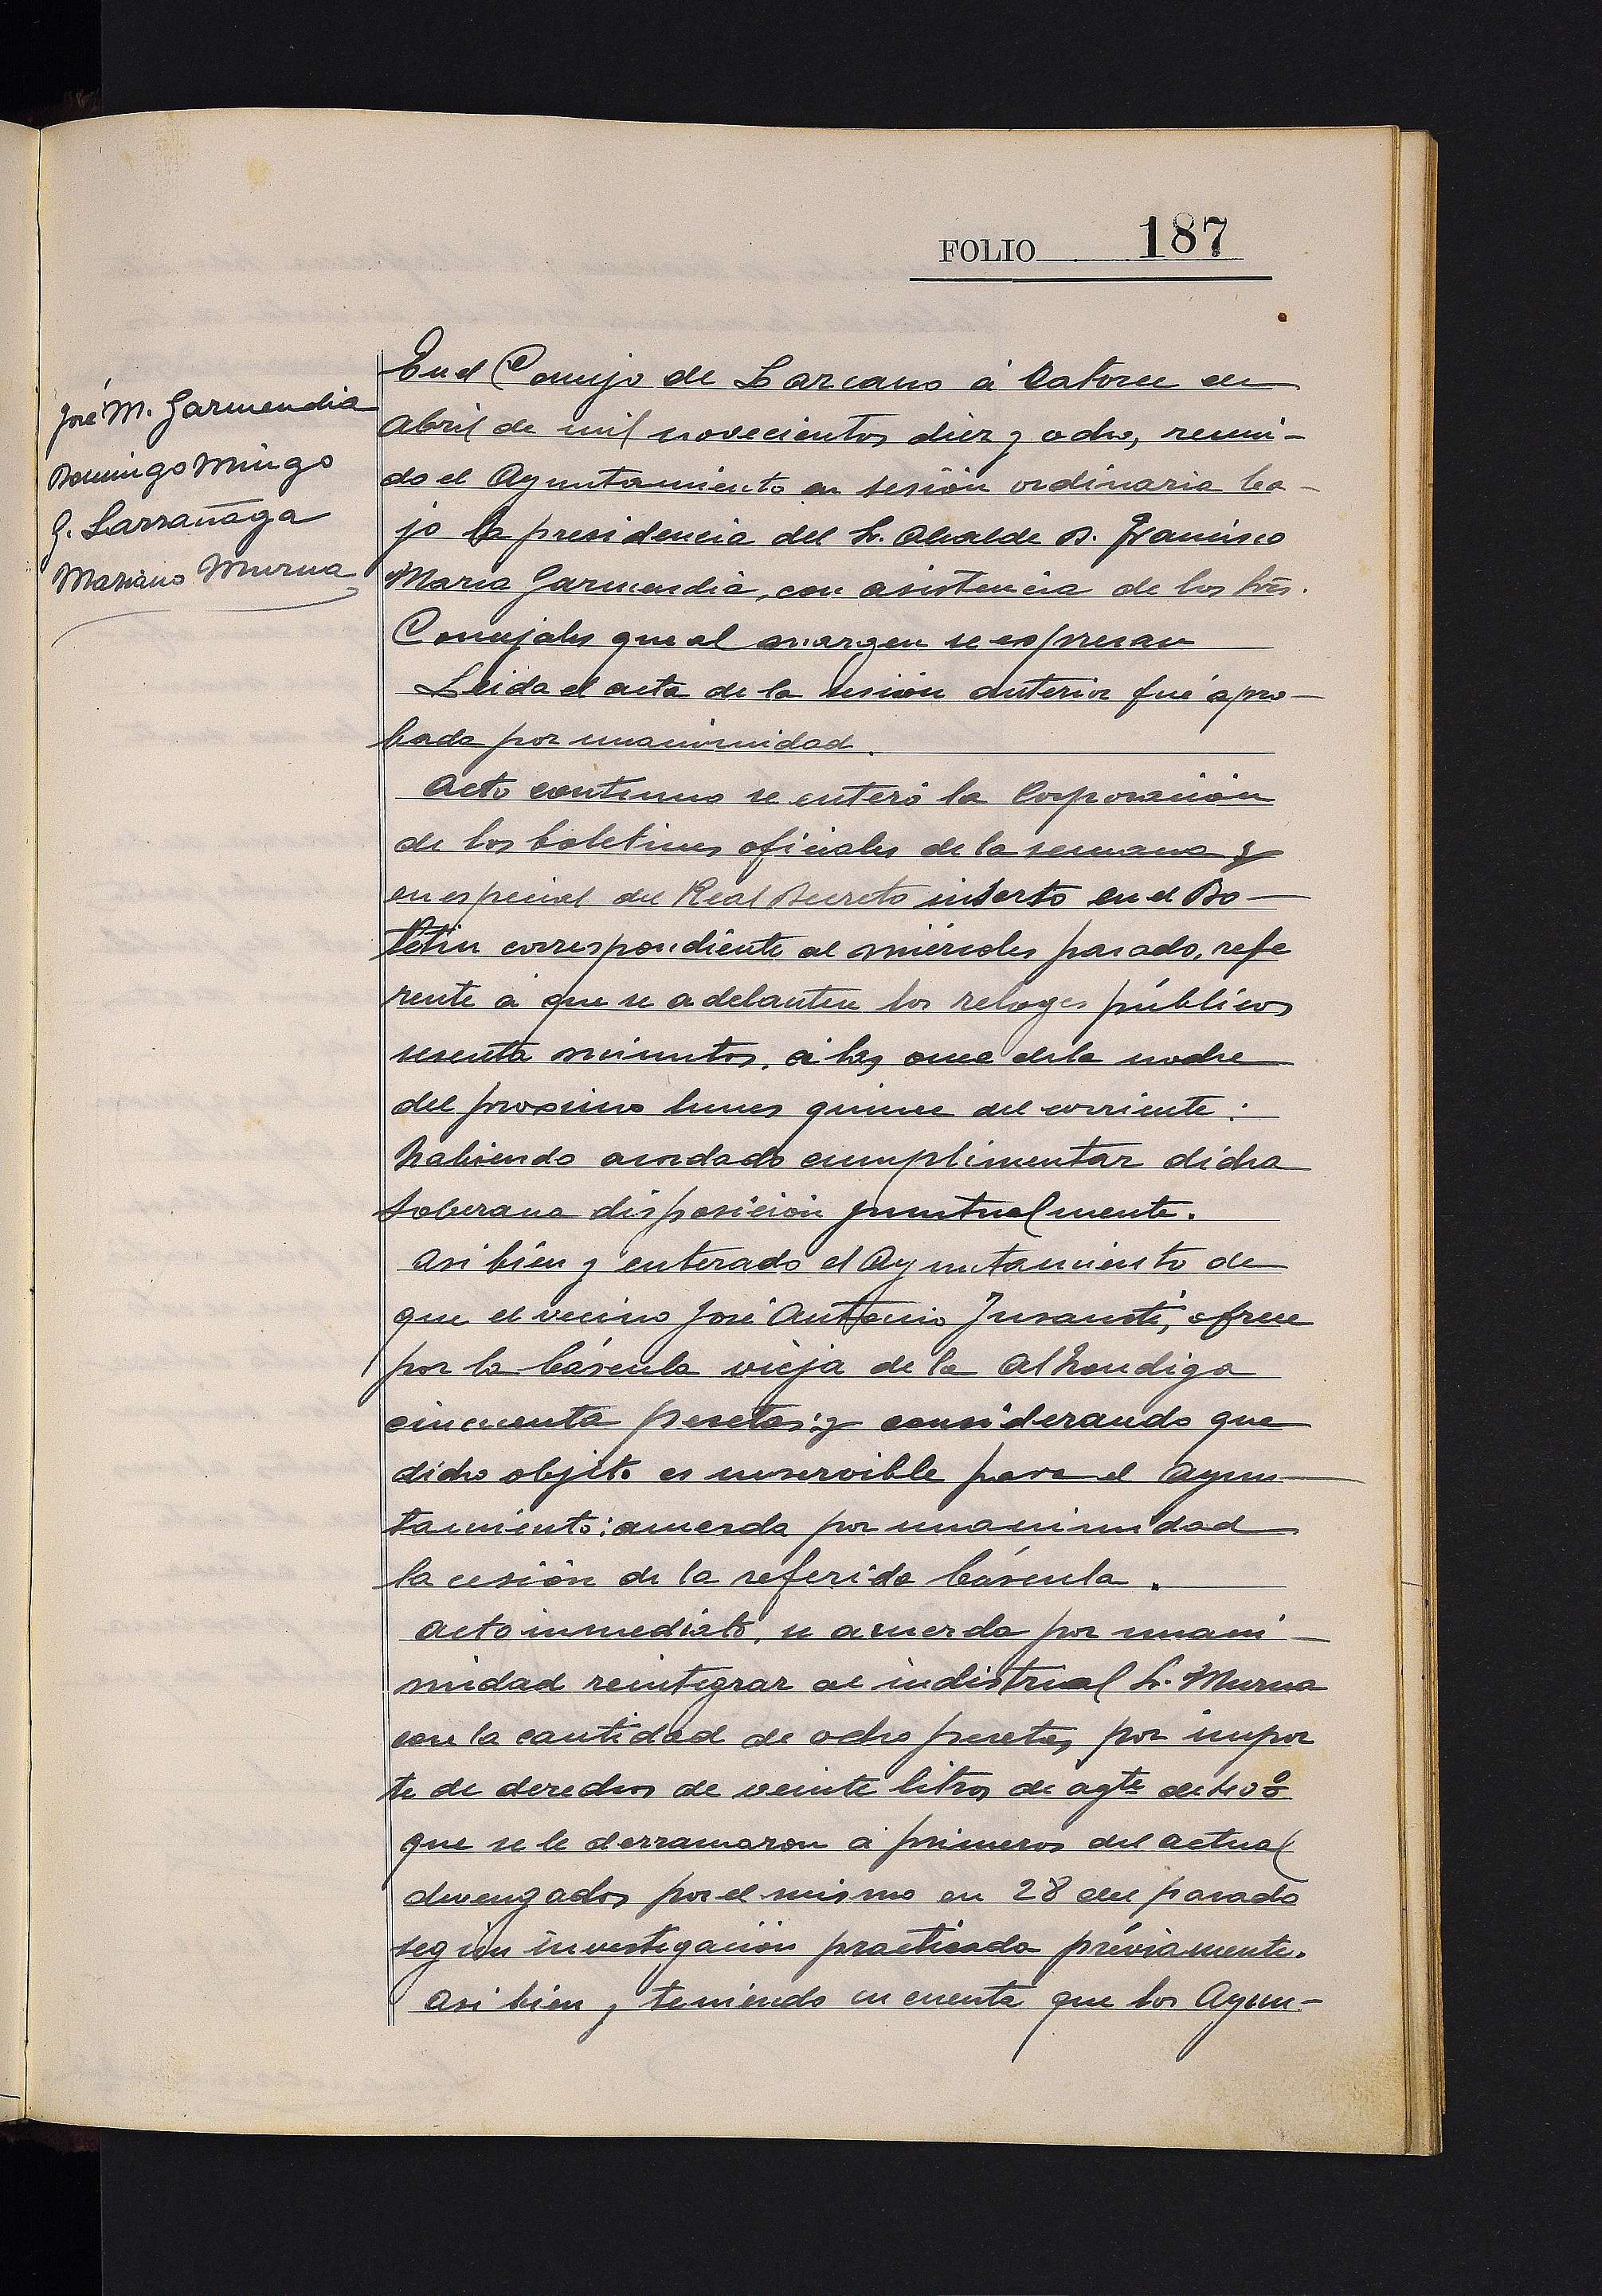 FOLIO 187
José M. Garmendia
Domingo Mingo
G. Larrañaga
Mariano Murua
En el Concejo de Lazcano á catorce de
Abril de mil novecientos diez y ocho, reuni-
do el Ayuntamiento en sesión ordinaria ba-
jo la presidencia del Sr. Alcalde D. Francisco
Maria Garmendia, con asistencia de los Srs.
Concejales que al margen se expresan
Leida el acta de la sesión anterior fué apro-
bada por unanimidad.
Acto continuo se enteró la Corporación
de los boletines oficiales de la semana y
en especial del Real Decreto inserto en el Bo-
letin correspondiente al miércoles pasado, refe
rente á que se adelanten los reloges públicos
sesenta minutos, á las once de la noche
del proximo lunes quince del corriente:
habiendo acordado cumplimentar dicha
soberana disposición puntualmente.
Asi bien y enterado el Ayuntamiento de
que el vecino José Antonio Insausti, ofrece
por la báscula vieja de la Alhondiga
cincuenta pesetas: y considerando que
dicho objeto es inservible para el Ayun-
tamiento: acuerda por unanimidad
la cesión de la referida báscula.
Acto inmediato, se acuerda por unani-
midad reintegrar al indistrial Sr. Murua
con la cantidad de ocho pesetas, por impor
te de derechos de veinte litros de agte de
que se le derramaron á primeros del actual
devengados por el mismo en 28 del pasado
según investigación practicada préviamente.
Asi bien y teniendo en cuenta que los Ayun-